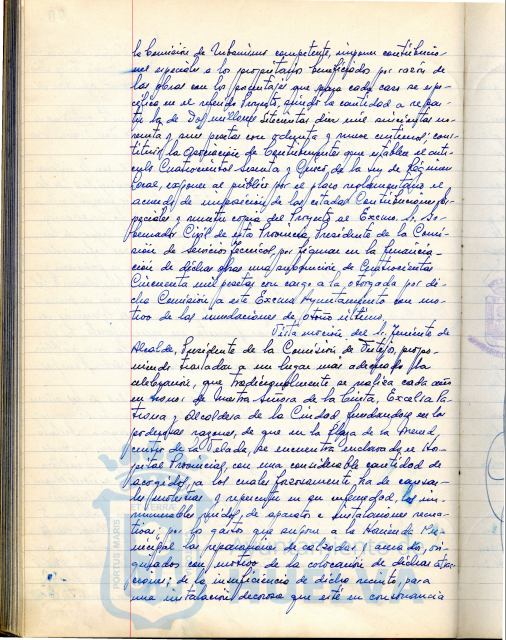 la Comisión de Urbanismo competente, imponer contribucio-
nes especiales a los propietarios beneficiados por razón de
las obras con los porcentajes que para cada caso se espe-
cifica en el mismo Proyecto, siendo la cantidad a repar-
tir la de Dos millones setecientas diez mil
y pesetas con ochenta y nueve centimos; cons-
tituir la Asociación de Contribuyentes que establece el artí-
culo Cuatrocientos sesenta y cinco de la Ley de Régimen
Local, exponer al público por el plazo reglamentario el
acuerdo de imposición de las citadas Contribuciones Es-
peciales y remitir copia del Proyecto al Excmo. Sr. Go-
bernador Civil de esta Provincia, Presidente de la Comi-
sión de Servicios Técnicos, por figurar en la financia-
ción de dichas obras una subvención de Cuatrocientas
Cincuenta mil pesetas con cargo a la otorgada por di-
cha Comisión a este Excmo Ayuntamiento con mo-
tivo de las inundaciones de otoño último.
Vista moción del Sr. Teniente de
Alcalde, Presidente de la Comisión de Festejos, propo-
niendo trasladar a un lugar más adecuado la
celebración, que tradicionalmente se realiza cada año
en honor de Nuestra Señora de la Cinta, Excelsa Pa-
trona y Alcaldesa de la Ciudad, fundandose en las
poderosas razones, de que en la Plaza de la Merced
centro de la Velada, se encuentra enclavado el Hos-
pital Provincial, con una considerable cantidad de
acogidos, a los cuales forzosamente, ha de causar-
les molestias y repercutir en su enfermedad, los in-
numerables ruidos, de aparatos e instalaciones recrea-
tivas; por los gastos que supone a la Hacienda Mu-
nicipal las reparaciones de calzadas y acerado, ori-
ginados con motivo de la colocación de dichas atrac-
ciones; de la insuficiencia de dicho recinto, para
una instalación decorosa que esté en consonancia
PORTUS MARIS
TERRAE